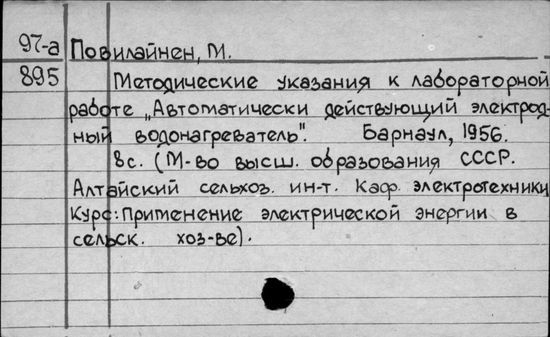 97-а Повилайнен, М.
895 Методические указания к лабораторной
работе „Автоматически действующий электрод-
ный водонагреватель". Барнаул, 1956.
8с. (М-во высш. образования СССР.
Алтайский сельхоз. ин-т. Каф. электротехники
Курс: Применение электрической энергии в
сельск. хоз-ве).